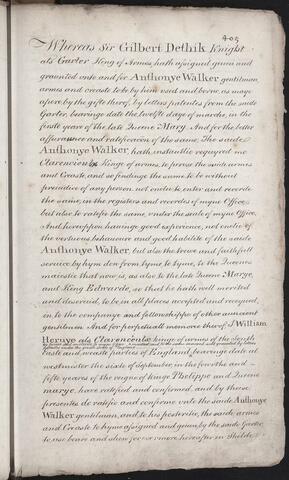 405
Whereas Sir Gilbert Dethik Knight
als Garter King of Armes, hath assigned geuin and
graunted vnto and for Anthonye Walker gentilman,
armes and creaste to be by him used and borne, as maye
apere by the gifte therof, by letters patentes from the saide
Garter, bearinge date the twelfte daye of marche, in the
firste yeare of the late Quene Mary. And for the better
assurance and ratificacion of the same, The saide
Anthonye Walker, hath instantlie requyred me
Clarencieulx Kinge of armes, to prove the saide armes
and Creaste, and so findinge the same to be without
preiudice of any person, not onelie to enter and recorde
the same, in the registers and recordes of myne Office,
but also to ratifie the same, under the seale of myne Office,
And hereuppon hauinge good experience, not onelie of
the vertuous behauiour and good habilite of the saide
Anthonye Walker, but also the brave and faithfull
service by hym don from tyme to tyme, to the Quenes
maiestie that now is, as also to the late Quene Marye,
and King Edwarde, so that he hath well merited
and deserved, to be in all places accepted and receyued,
in to the companye and felowshippe of other auncient
gentilmen And for perpetuall memorie therof I William
Hervye als Clarencieulx kinge of armes of the South
easte and weaste parties of England
westminster the sixte of september, in the fowrthe and
fifte yeares of the reigne of kinge Philippe and Quene
marye, have ratified and confirmed, and by these
presentes do ratifie and confirme vnto the saide Anthonye
Walker gentilman, and to his posterite, the saide armes
and Creaste to hym assigned and geuin, by the saide Garter,
to use beare and shew for evermore hereafter in Shilde